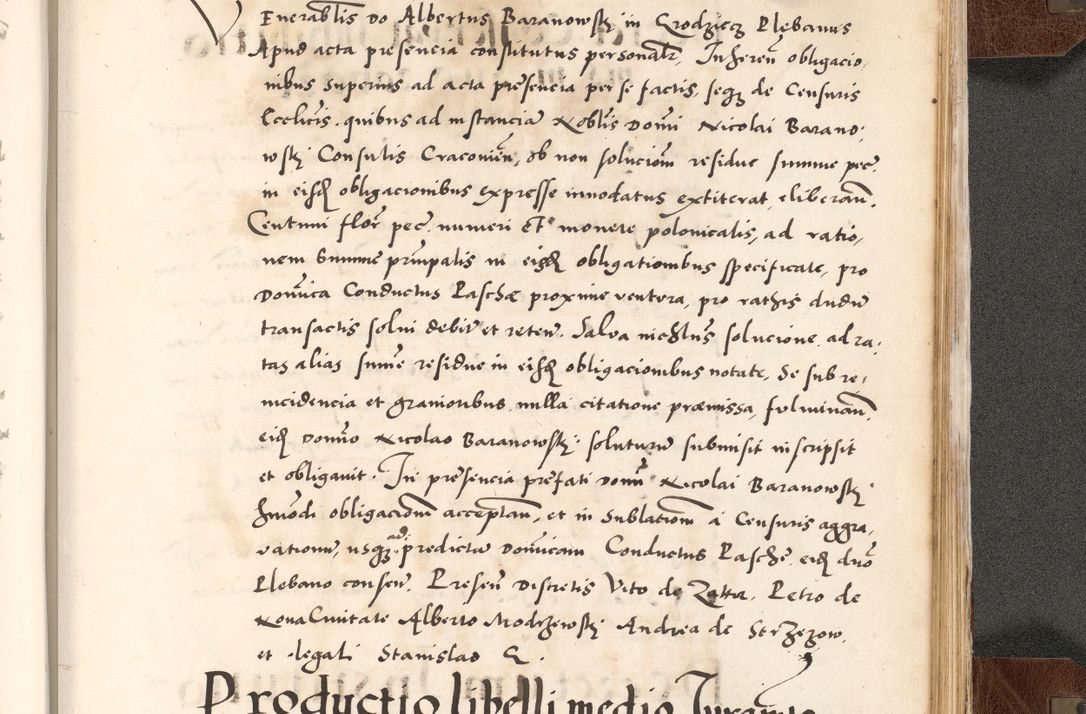 Venerabilis Do Albertus Baranowskj in Grodziecz Plebanus
Apud acta presencia constitutus personalr, Inheren obligacio,
nibus superius ad acta presencia per se factis, seqz de Censuris
Ecclicis, quibus ad instancia Nobilis Domi Nicolai Barano,
wskj Consulis Cracovien, ob non solucione residue summe pec,
in eisd obligacionibus expresse innodatus extiterat, eliberan,
Centum flor pec, numeri et monete polonicalis, ad ratio,
nem summe prnpalis in eisd obligationibus specificate, pro
Domica Conductus Paschæ proxime ventura, pro rathis dudu
transactis solui debit et reten. Salva nichilus solucione ad ra,
tas alias sume residue in eisd obligacionibus notate, Se sub re,
incidencia et gravioribus nulla citatione præmissa fulminan,
eid Domno Nicolao Baranowskj soluturu submisit inscripsit
et obligavit. In presencia prefati Domi Nicolai Baranowskj
hmodi obligacionem acceptan, et in sublationem a Censuris aggra,
vationum, usqz ad predicta Domicam Conductus Pasche, eid dno
Plebano consen, Presen Discretis Vito de Zatta, Petro de
Nova Civitate Alberto Modrzewskj Andrea de Strzezow,
et legali Stanislao G.
Productio libelli medio Iuramto